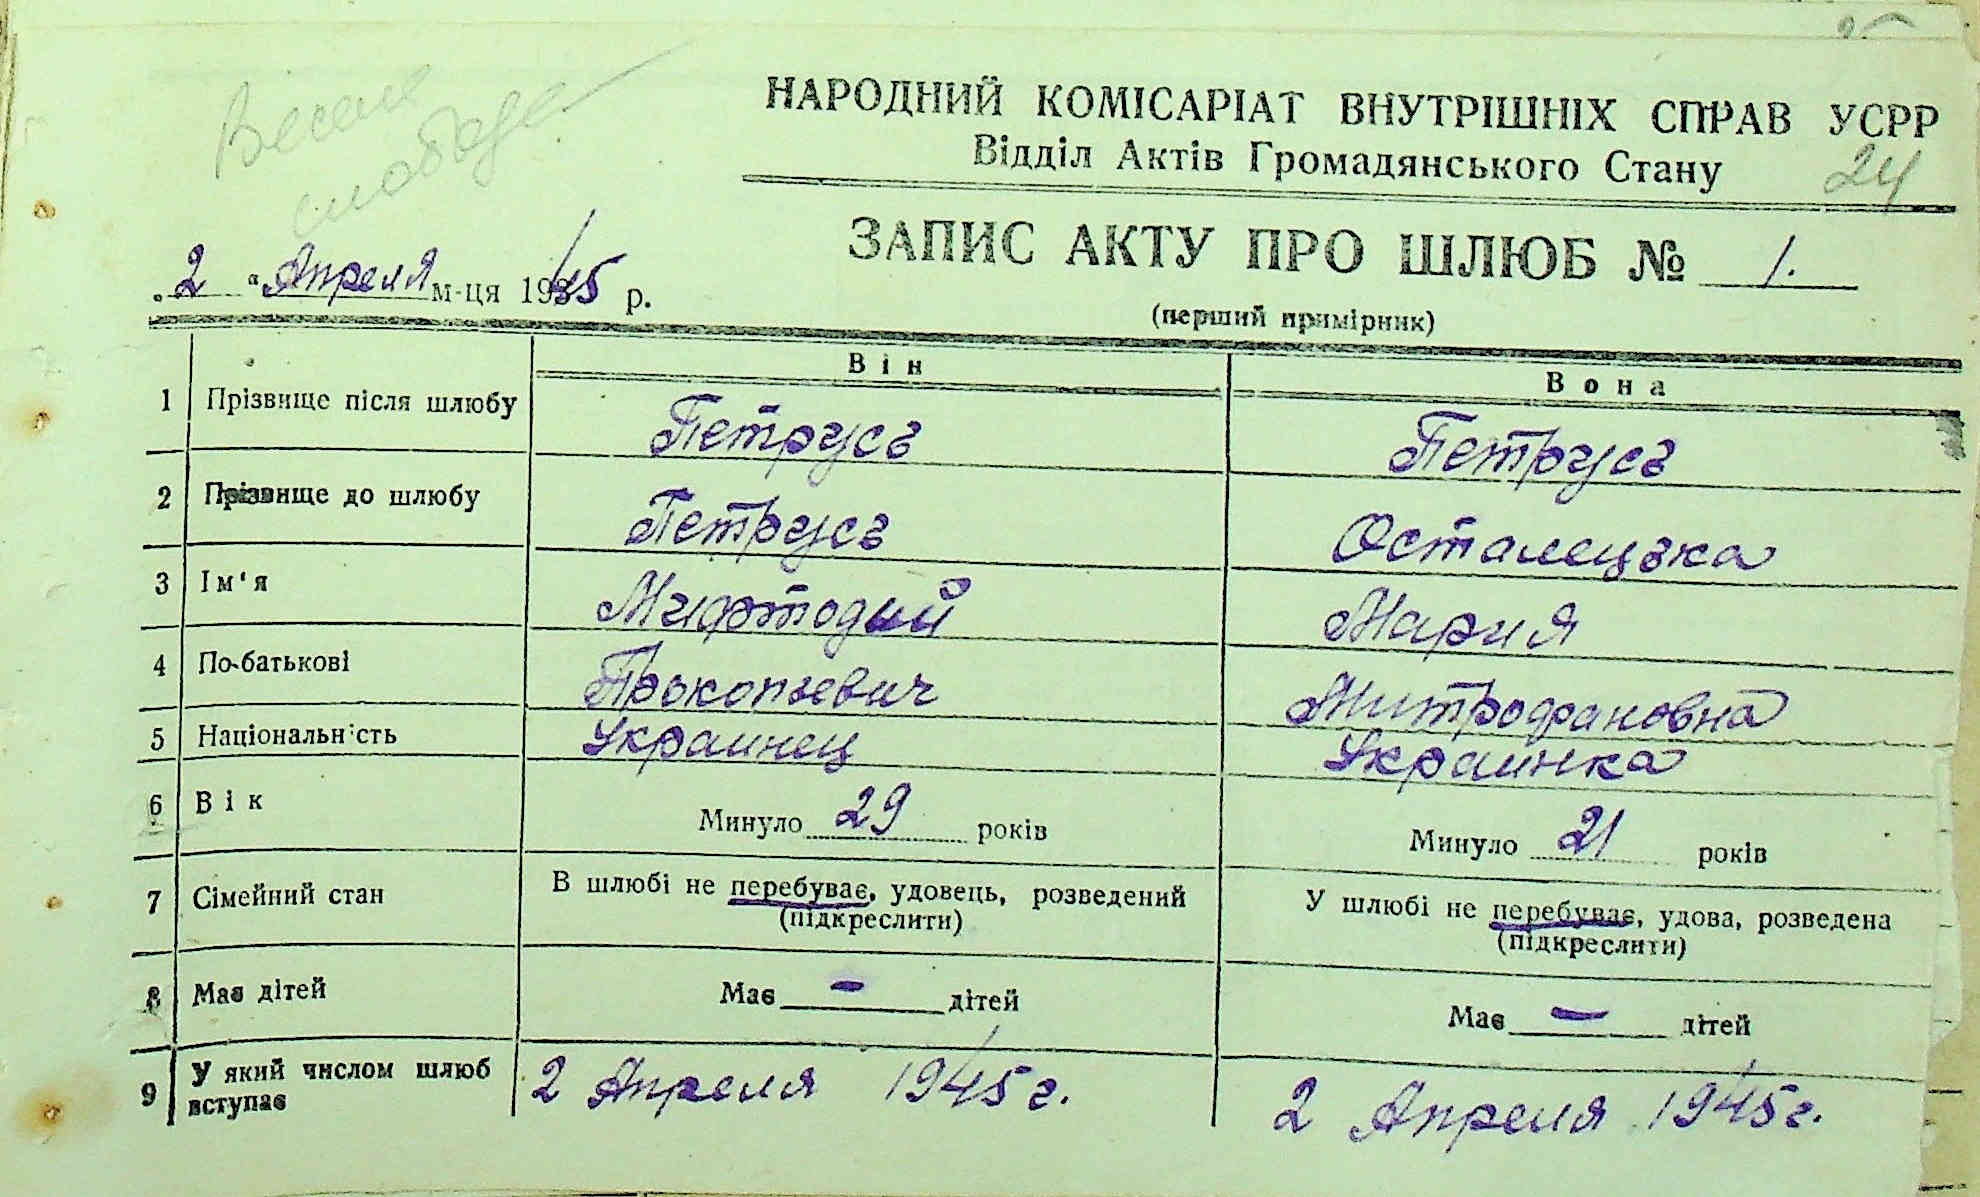 Весела
слобода
НАРОДНИЙ КОМІСАРІАТ ВНУТРІШНІХ СПРАВ УСРР
Відділ Актів Громадянського Стану
24
ЗАПИС АКТУ ПРО ШЛЮБ № 1.
(перший примірник)
"2" Апреля м-ця 1945 р.
Він
Вона
1 Прізвище після шлюбу Петрусь Петрусь
2 Прізвище до шлюбу Петрусь Осталецька
3 Ім'я Мифтодий Мария
4 По-батькові Прокопьевич Митрофановна
5 Національність Украинец Украинка
6 Вік Минуло 29 років Минуло 21 років
7 Сімейний стан В шлюбі не перебуває, удовець, розведений У шлюбі не перебуває, удова, розведена
(підкреслити) (підкреслити)
8 Має дітей Має - дітей Має - дітей
9 У який числом шлюб вступає 2 Апреля 1945 г. 2 Апреля 1945 г.